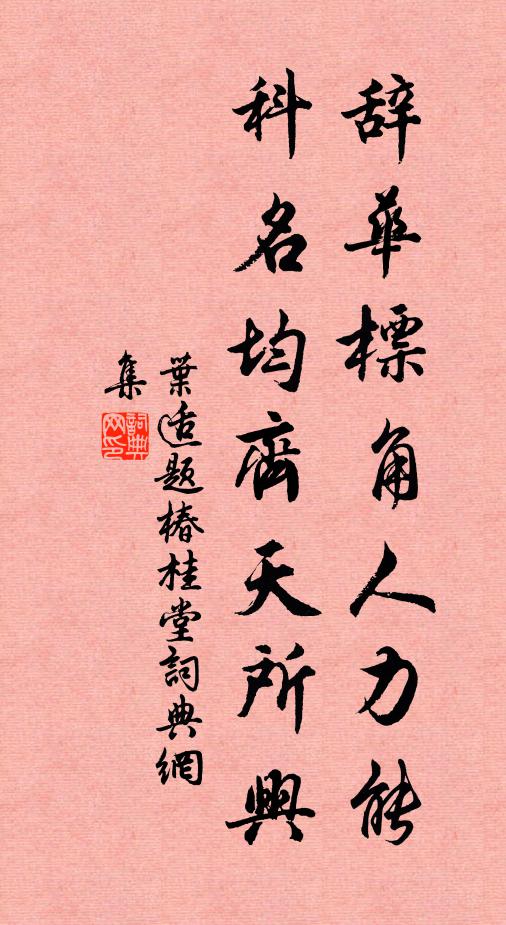 辞華標角人力能
科名均齊天所興
葉适题椿桂堂詞典網
集
詞典
网印